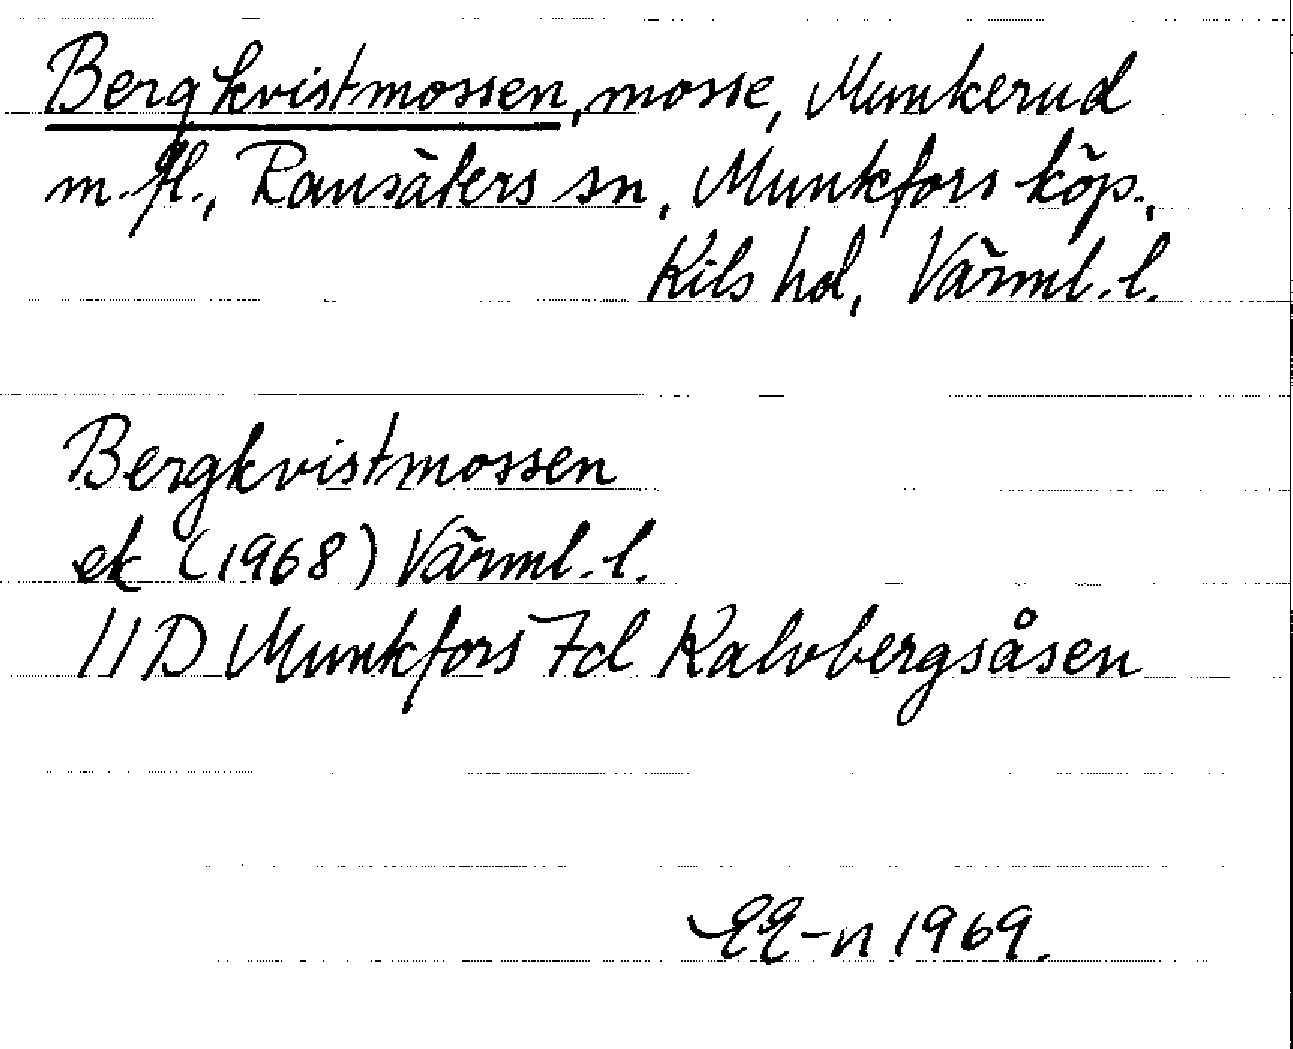 Bergkvistmossen, mosse, Munkerud
m.fl., Ransäters sn, Munkfors köp.,
Kils hd, Värml. l.
Bergkvistmossen
ek (1968) Värml. l.
11D Munkfors 7cd Kalvbergsåsen
EE-n 1969.